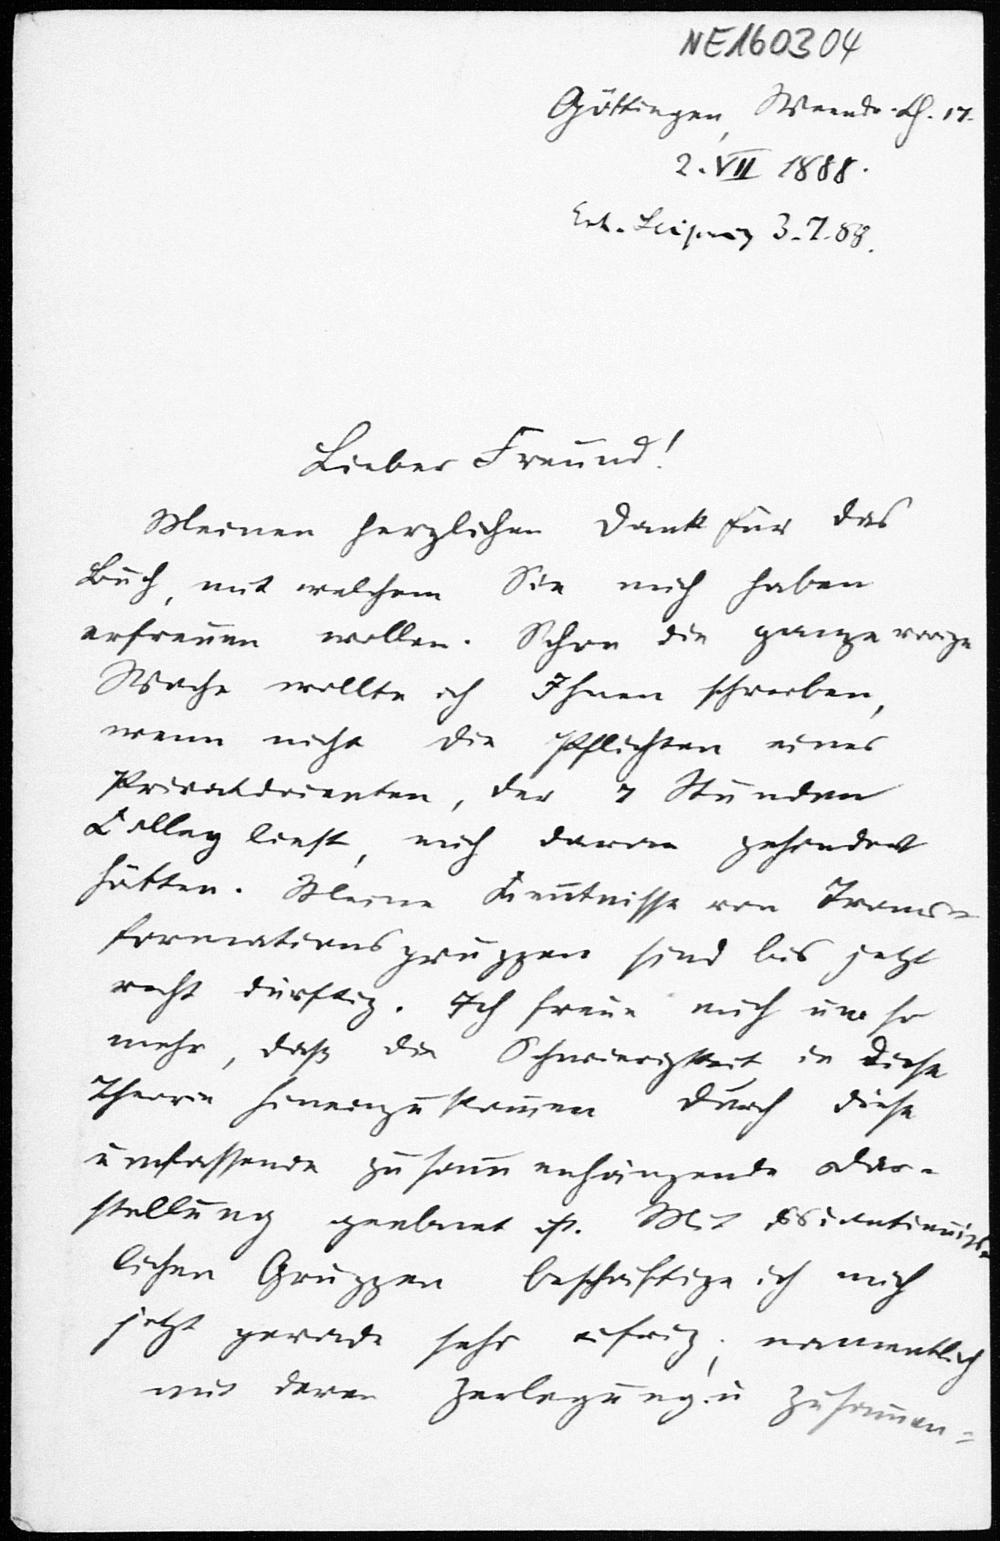 NE160304
Göttingen, Weender-Ch. 17.
2. VII 1888.
Erh. Leipzig 3.7.88.
Lieber Freund!
Meinen herzlichen Dank für das
Buch, mit welchem Sie mich haben
erfreuen wollen. Schon die ganze vorige
Woche wollte ich Ihnen schreiben,
wenn nicht die Pflichten eines
Privatdocenten, der 7 Stunden
Colleg liest, mich daran gehindert
hätten. Meine Kenntnisse von Trans-
formationsgruppen sind bis jetzt
recht dürftig. Ich freue mich um so
mehr, daß die Schwierigkeit in diese
Theorie hineinzukommen durch diese
umfassende zusammenhängende Dar-
stellung geebnet ist. Mit discontinuir-
lichen Gruppen beschäftige ich mich
jetzt gerade sehr eifrig, namentlich
mit deren Zerlegung u Zusammen-